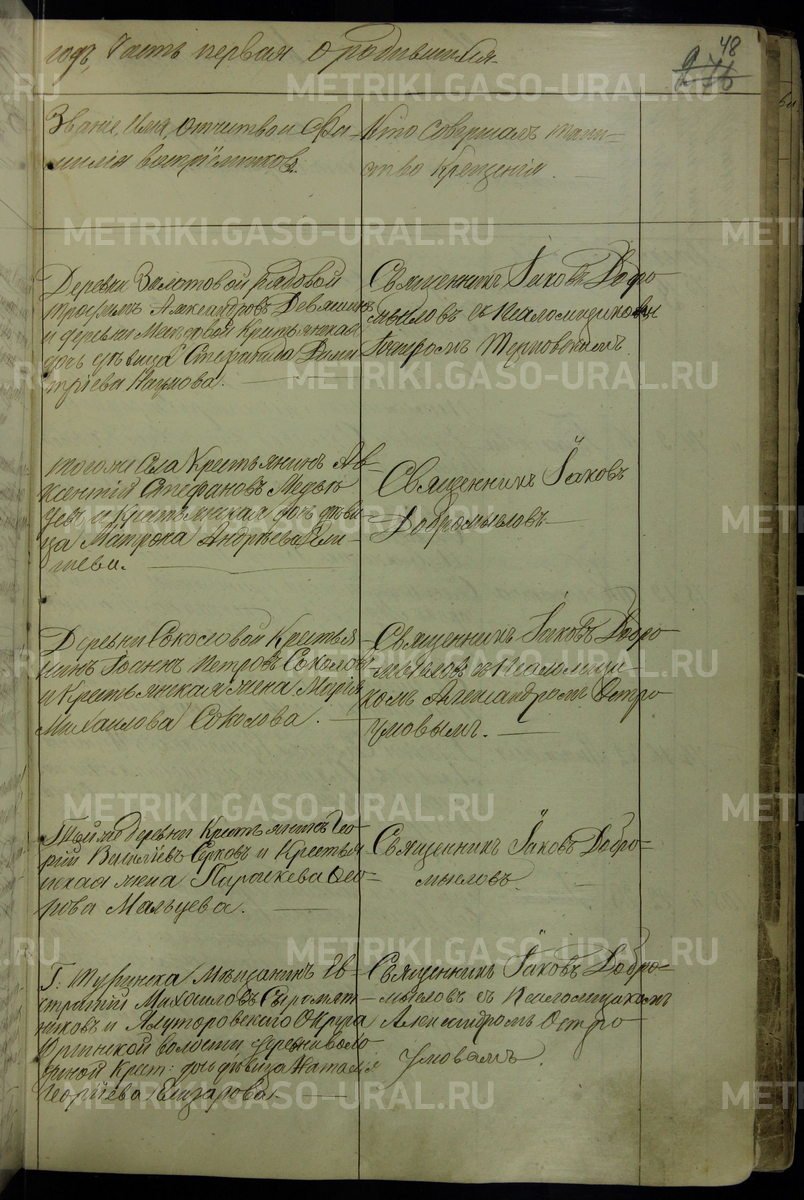 годъ, Часть первая о родившихся.
48
Званіе, Имя, Отчество и Фа-
милія воспріемниковъ.
Кто совершалъ таин-
ство Крещенія.
Деревни Золотовой рядовой
Трофимъ Александровъ Девяшинъ
и деревни Крестьянская
дочь дѣвица Степанида Дими
тріева Наумова.
Священникъ Іаковъ Добро
мысловъ съ Псаломщикомъ
Петромъ Терновскимъ.
тогоже Села Крестьянинъ Ав-
ксентій Стефановъ
и Крестьянская дочь дѣви-
ца Матрона Андреева
Священникъ Іаковъ
Добромысловъ
Деревни Соколовой Крестья
нинъ Іоаннъ Петровъ Соколовъ
и Крестьянская жена Марія
Михаилова Соколова.
Священникъ Іаковъ Добро
мысловъ съ Псаломщи-
комъ Александромъ Остро
умовымъ.
Той же деревни Крестьянинъ Геор
гій Василіевъ Серковъ и Крестья
нская жена Параскева Ѳео-
дорова Мальцева.
Священникъ Іаковъ Добро-
мысловъ.
Г: Туринска Мѣщанинъ Ев-
стратій Михаиловъ Сыромят-
никовъ и Ялуторовскаго Округа
Юргинской волости деревни Воло
диной Крест: дочь дѣвица Наталія
Георгіева Елизарова.
Священникъ Іаковъ Добро-
мысловъ съ Псаломщикомъ
Александромъ Остро
умовымъ.
METRIKI.GASO-URAL.RU